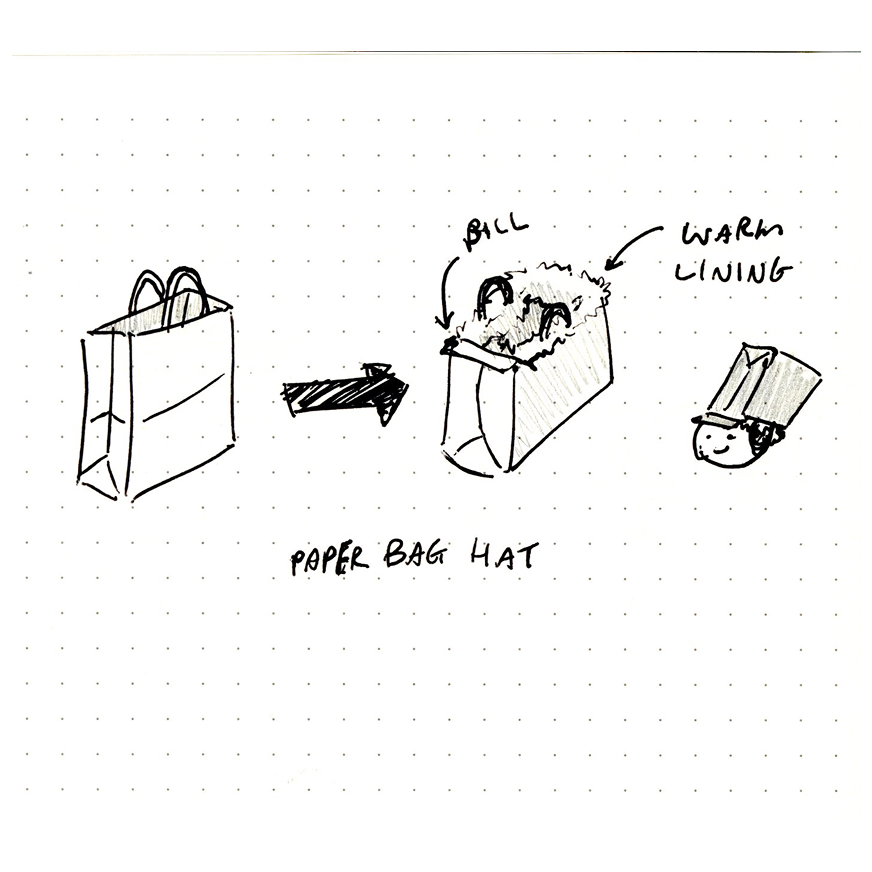 BILL
WARM
LINING
PAPER BAG HAT